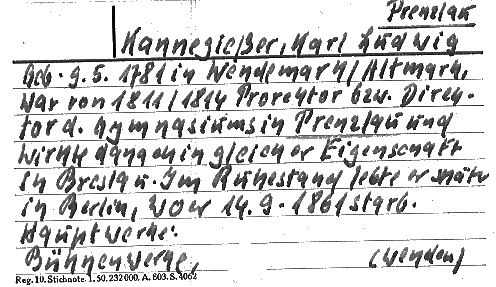 Prenzlau
Kannegießer, Karl Ludwig
Geb. 9.5. 1781 in Wendemark/Altmark,
war von 1811/1814 Prorektor bzw. Direk-
tor d. Gymnasiums in Prenzlau und
wirkte dann in gleicher Eigenschaft
in Breslau. Im Ruhestand lebte er später
in Berlin, wo er 14.9.1861 starb.
Hauptwerke:
Bühnenwerke, (wenden)
Reg. 10. Stichnote. 1. 50. 232000. A. 803. S. 4062